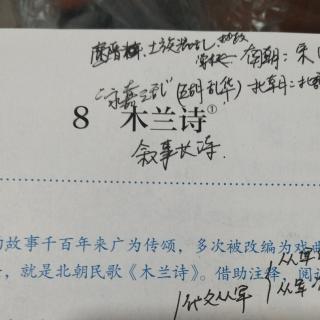 南朝：宋
"永嘉之乱"（五胡乱华）北朝：北
8 木兰诗①
叙事长诗.
故事千百年来广为传颂，多次被改编为戏曲
，就是北朝民歌《木兰诗》。借助注释，阅
从军
代父从军
从军